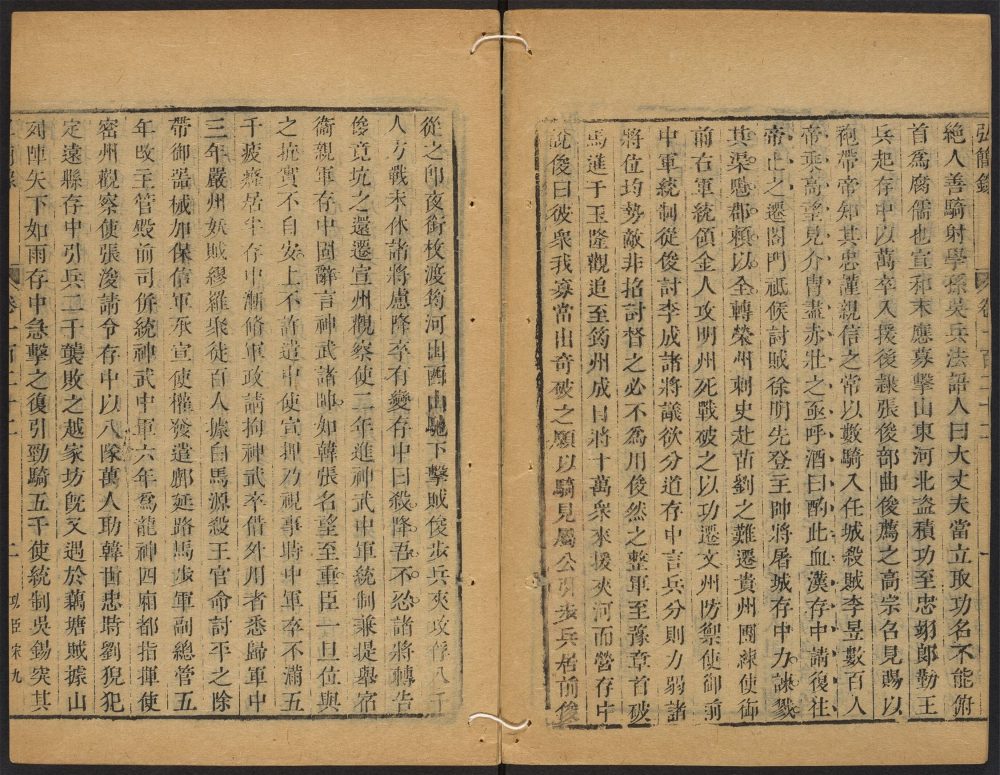 弘簡錄 卷一百二十二 一
絶人善騎射學孫吳兵法語人曰大丈夫當立取功名不能俯
首爲腐儒也宣和末應募擊山東河北盗積功至忠翊郎勤王
兵起存中以萬卒入援後隷張俊部曲俊薦之高宗召見賜以
袍帶帝知其忠謹親信之常以數騎入任城殺賊李昱數百人
帝乘高望見介冑盡赤壯之亟呼酒曰酌此血漢存中請復往
帝止之遷閤門祗候討賊徐明先登主帥將屠城存中力諫戮
其渠魁郡賴以全轉榮州刺史赴苗劉之難遷貴州團練使御
前右軍統領金人攻明州死戰破之以功遷文州防禦使御前
中軍統制從俊討李成諸將議欲分道存中言兵分則力弱諸
將位均勢敵非招討督之必不爲用俊然之整軍至豫章首破
馬進于玉隆觀追至筠州成自將十萬衆來援夾河而營存中
說俊曰彼衆我寡當出奇破之願以騎見屬公引步兵居前俊
從之卽夜銜枚渡筠河出西山馳下擊賊俊步兵夾攻俘八千
人方戰未休諸將慮降卒有變存中曰殺降吾不忍諸將轉告
俊竟坑之還遷宣州觀察使二年進神武中軍統制兼提舉宿
衞親軍存中固辭言神武諸帥如韓張名望至重臣一旦位與
之抗實不自安上不許遣中使宣押乃視事時中軍卒不滿五
千疲癃居半存中漸脩軍政請拘神武卒借外用者悉歸軍中
三年嚴州妖賊繆羅聚徒百人據白馬源殺王官命討平之除
帶御器械加保信軍承宣使權發遣鄜延路馬步軍副總管五
年改主管殿前司併統神武中軍六年爲龍神四廂都指揮使
密州觀察使張浚請令存中以八隊萬人助韓世忠時劉猊犯
定遠縣存中引兵二千襲敗之越家坊旣又遇於藕塘賊據山
列陣矢下如雨存中急擊之復引勁騎五千使統制吳錫突其
卷一百二十二 二 功臣宋九